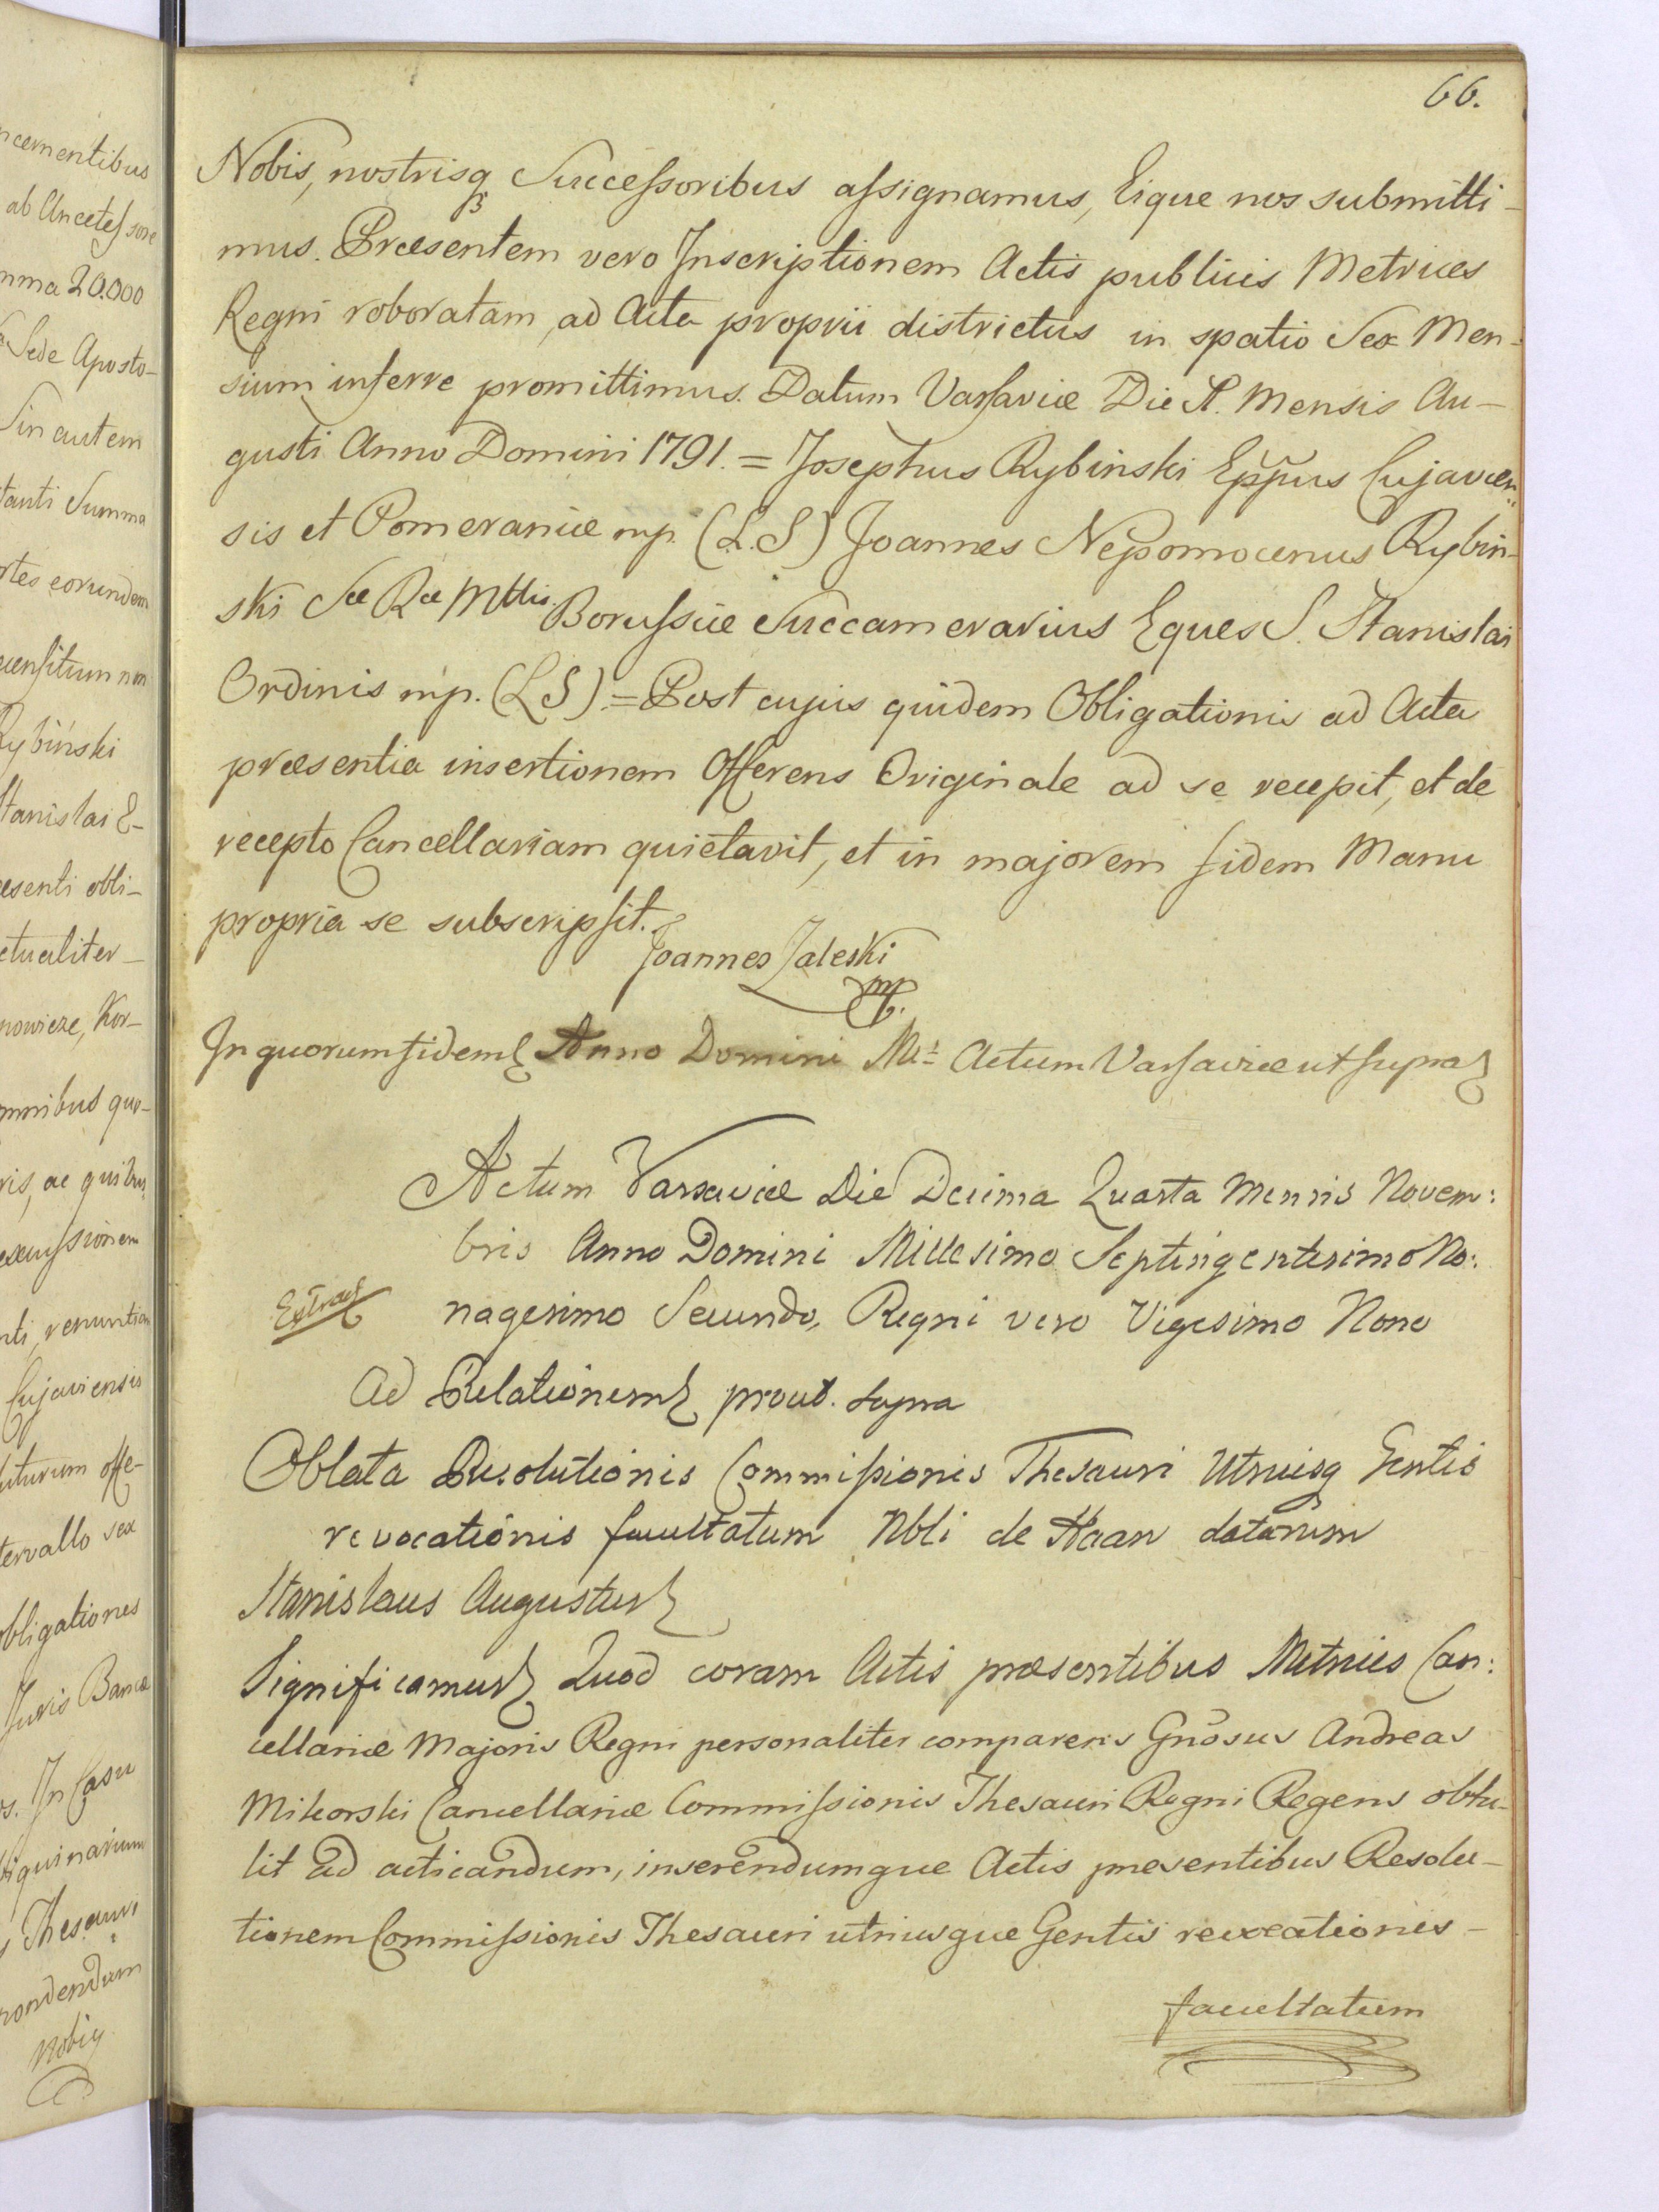 ncernentibus
ab Ancetessore
mma 20.000
Sede Aposto-
Sin autem
tanti Summa
rtes eorundem
censitum non
Rybiński
Stanislai E-
esenti obli-
ctualiter -
nowicze, Kor-
mnibus quo-
ris, ac quibus
excussionem
nti, renuntian
Cujaviensis
uturum offe-
tervallo sex
obligationes
Juris Bannæ
os. In Casu
Thesauri
rondendum
Nobis
66.
Nobis, nostrisq Successoribus assignamus, Eique nos submitti-
mus. Præsentem vero Inscriptionem Actis publicis Metrices
Regni roboratam, ad Acta proprii districtus in spatio Sex Men-
sium inferre promittimus. Datum Varsaviæ Die . Mensis Au-
gusti Anno Domini 1791. = Josephus Rybinski Eppus Cujavien„
sis et Pomeraniæ mp. (L.S) Joannes Nepomocenus Rybin-
ski Sæ Ræ Mttis. Borussiæ Succamerarius Eques S. Stanislai
Ordinis mp. (LS). = Post cujus quidem Obligationis ad Acta
præsentia insertionem Offerens Originale ad se recepit, et de
recepto Cancellariam quietavit, et in majorem fidem Manu
propria se subscripsit.
Joannes Zaleski
mp.
In quorum fidem Anno Domini Mi: Actum Varsaviæ ut supra
Actum Varsaviæ Die Decima Quarta Mensis Novem:
bris Anno Domini Millesimo Septingentesimo No:
Extract nagesimo Secundo, Regni vero Vigesimo Nono
Ad Relationem prout. supra
Oblata Resolutionis Commissionis Thesauri Utriusq Gentis
revocationis facultatum Nbli de Haan datarum
Stanislaus Augustus
Significamus Quod coram Actis præsentibus Metrices Can:
cellariæ Majoris Regni personaliter comparens Gnosus Andreas
Mikorski Cancellariæ Commissionis Thesauri Regni Regens obtu-
lit ad acticandum, inserendumque Actis præsentibus Resolu-
tionem Commissionis Thesauri utriusque Gentis revocationis -
facultatum